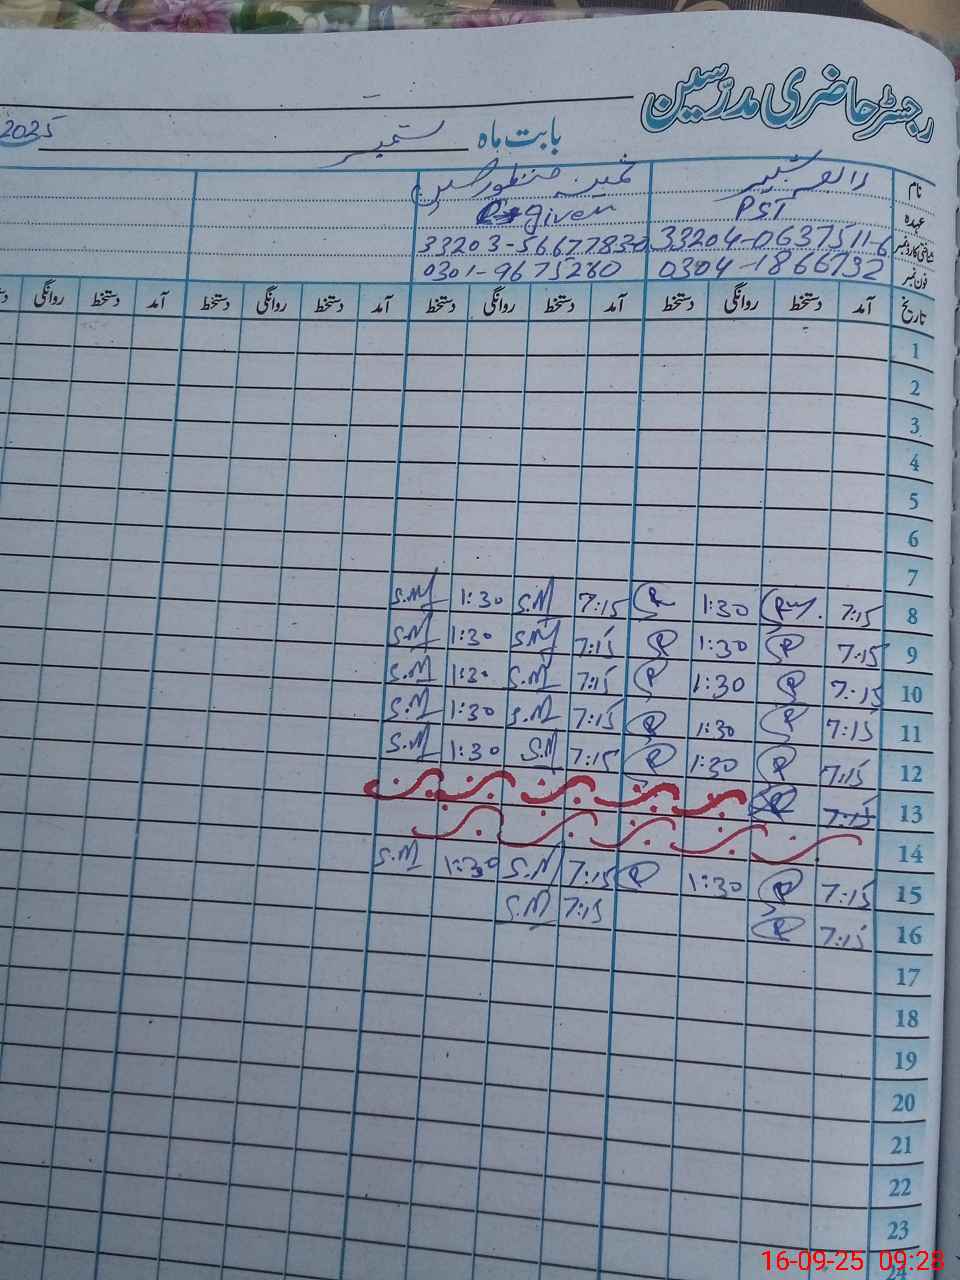 رجسٹر حاضری مدرّسین
بابت ماہ ستمبر 2025
نام رائعہ شبیر ثمینہ منظور حسین
عہدہ PST C given
شناختی کارڈ نمبر 33204-0637511-6 33203-5667783-0
فون نمبر 0304-1866732 0301-9675280
تاریخ آمد دستخط روانگی دستخط آمد دستخط روانگی دستخط آمد دستخط روانگی دستخط آمد دستخط روانگی
1
2
3
4
5
6
7
8 7:15 1:30 7:15 S.M 1:30 S.M
9 7:15 1:30 7:15 S.M 1:30 S.M
10 7:15 1:30 7:15 S.M 1:30 S.M
11 7:15 1:30 7:15 S.M 1:30 S.M
12 7:15 1:30 7:15 S.M 1:30 S.M
13 7:15
14
15 7:15 1:30 7:15 S.M 1:30 S.M
16 7:15 7:15 S.M
17
18
19
20
21
22
23
24
16-09-25 09:28